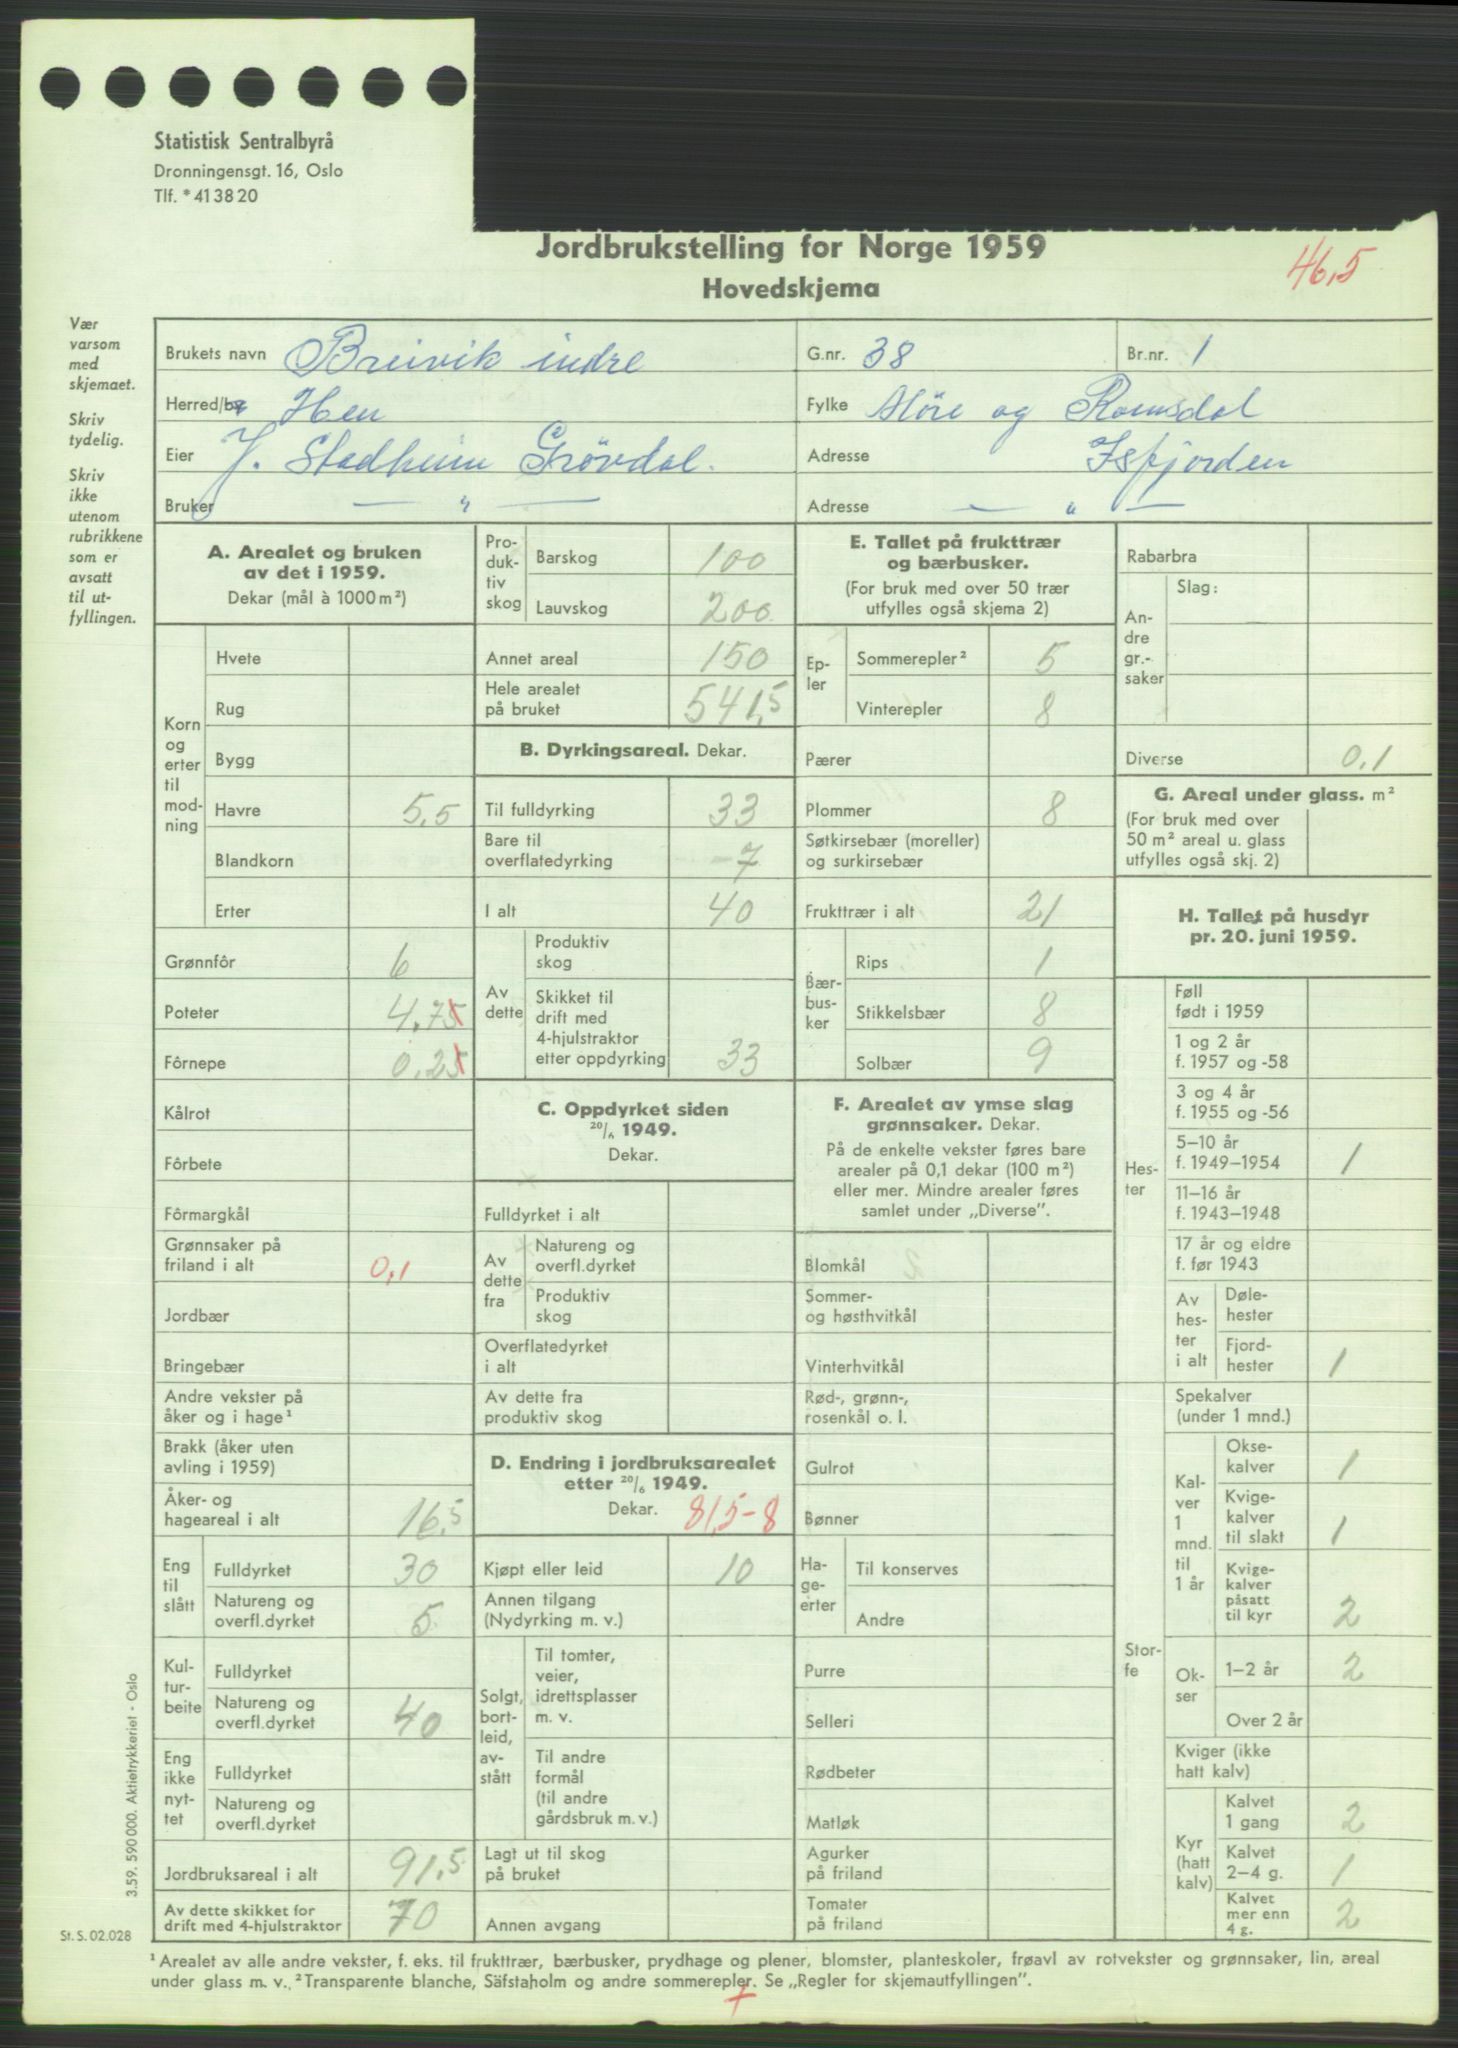 Statistisk Sentralbyrå
Dronningensgt. 16, Oslo
Tlf. * 41 38 20
Jordbrukstelling for Norge 1959
46,5
Hovedskjema
Vær
varsom
med
skjemaet.
Skriv
tydelig.
Skriv
ikke
utenom
rubrikkene
som er
avsatt
til ut-
fyllingen.
Brukets navn Breivik indre G.nr. 38 Br.nr. 1
Herred/by Hen Fylke Møre og Romsdal
Eier J. Stadheim Grövdal. Adresse Isfjorden
Bruker — " — Adresse — " —
A. Arealet og bruken
av det i 1959.
Dekar (mål à 1000 m²)
Korn
og
erter
til
mod-
ning
Hvete
Rug
Bygg
Havre 5,5
Blandkorn
Erter
Grønnfôr 6
Poteter 4,75
Fôrnepe 0,25
Kålrot
Fôrbete
Fôrmargkål
Grønnsaker på
friland i alt 0,1
Jordbær
Bringebær
Andre vekster på
åker og i hage¹
Brakk (åker uten
avling i 1959)
Åker- og
hageareal i alt 16,5
Eng
til
slått
Fulldyrket 30
Natureng og
overfl.dyrket 5
Kul-
tur-
beite
Fulldyrket
Natureng og
overfl.dyrket 40
Eng
ikke
nyt-
tet
Fulldyrket
Natureng og
overfl.dyrket
Jordbruksareal i alt 91,5
Av dette skikket for
drift med 4-hjulstraktor 70
Pro-
duk-
tiv
skog
Barskog 100
Lauvskog 200
Annet areal 150
Hele arealet
på bruket 541,5
B. Dyrkingsareal. Dekar.
Til fulldyrking 33
Bare til
overflatedyrking 7
I alt 40
Av
dette
Produktiv
skog
Skikket til
drift med
4-hjulstraktor
etter oppdyrking 33
C. Oppdyrket siden
20/6 1949.
Dekar.
Fulldyrket i alt
Av
dette
fra
Natureng og
overfl.dyrket
Produktiv
skog
Overflatedyrket
i alt
Av dette fra
produktiv skog
D. Endring i jordbruksarealet
etter 20/6 1949.
Dekar. 81,5-8
Kjøpt eller leid 10
Annen tilgang
(Nydyrking m. v.)
Solgt,
bort-
leid,
av-
stått
Til tomter,
veier,
idrettsplasser
m. v.
Til andre
formål
(til andre
gårdsbruk m. v.)
Lagt ut til skog
på bruket
Annen avgang
E. Tallet på frukttrær
og bærbusker.
(For bruk med over 50 trær
utfylles også skjema 2)
Ep-
ler
Sommerepler² 5
Vinterepler 8
Pærer
Plommer 8
Søtkirsebær (moreller)
og surkirsebær
Frukttrær i alt 21
Bær-
bus-
ker
Rips 1
Stikkelsbær 8
Solbær 9
F. Arealet av ymse slag
grønnsaker. Dekar.
På de enkelte vekster føres bare
arealer på 0,1 dekar (100 m²)
eller mer. Mindre arealer føres
samlet under „Diverse".
Blomkål
Sommer-
og høsthvitkål
Vinterhvitkål
Rød-, grønn-,
rosenkål o. l.
Gulrot
Bønner
Ha-
ge-
erter
Til konserves
Andre
Purre
Selleri
Rødbeter
Matløk
Agurker
på friland
Tomater
på friland
Rabarbra
An-
dre
gr.-
saker
Slag:
Diverse 0,1
G. Areal under glass. m²
(For bruk med over
50 m² areal u. glass
utfylles også skj. 2)
H. Tallet på husdyr
pr. 20. juni 1959.
Hes-
ter
Føll
født i 1959
1 og 2 år
f. 1957 og -58
3 og 4 år
f. 1955 og -56
5–10 år
f. 1949–1954 1
11–16 år
f. 1943–1948
17 år og eldre
f. før 1943
Av
hes-
ter
i alt
Døle-
hester
Fjord-
hester 1
Stor-
fe
Spekalver
(under 1 mnd.)
Kal-
ver
1
mnd.
til
1 år
Okse-
kalver 1
Kvige-
kalver
til slakt 1
Kvige-
kalver
påsatt
til kyr 2
Ok-
ser
1–2 år 2
Over 2 år
Kviger (ikke
hatt kalv)
Kyr
(hatt
kalv)
Kalvet
1 gang 2
Kalvet
2–4 g. 1
Kalvet
mer enn
4 g. 2
3.59. 590 000. Aktietrykkeriet - Oslo
St. S. 02.028
¹ Arealet av alle andre vekster, f. eks. til frukttrær, bærbusker, prydhage og plener, blomster, planteskoler, frøavl av rotvekster og grønnsaker, lin, areal
under glass m. v., ² Transparente blanche, Säfstaholm og andre sommerepler. Se „Regler for skjemautfyllingen".